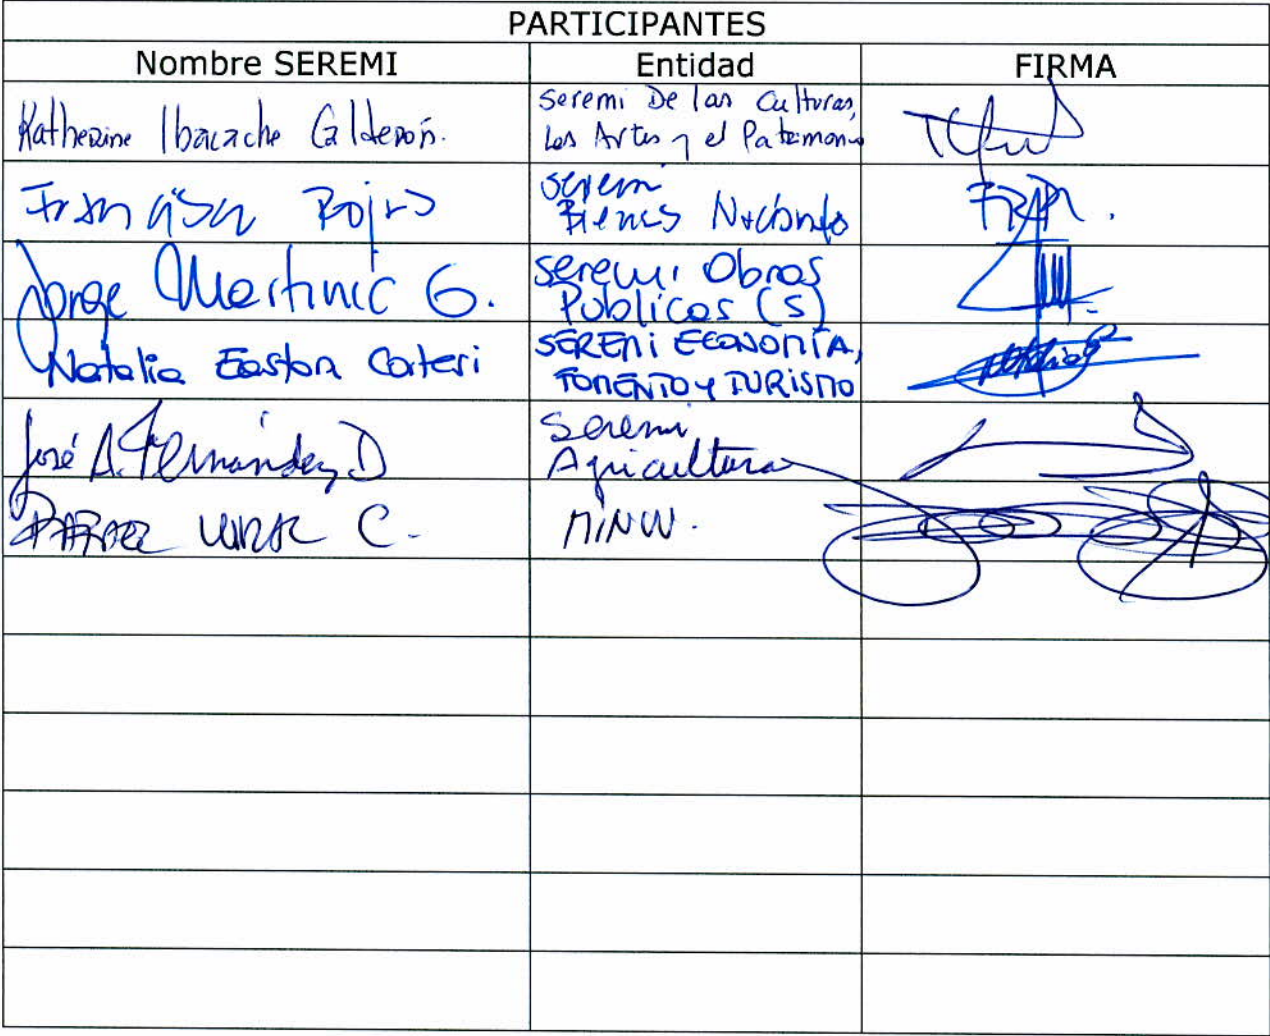 PARTICIPANTES
Nombre SEREMI Entidad FIRMA
Katherine Ibacache Calderón. Seremi De las Culturas,
Las Artes y el Patrimonio
Francisca Rojas Seremi
Bienes Nacionales
Jorge Martinic G. Seremi Obras
Públicas (S)
Natalia Easton Carteri SEREMI ECONOMÍA,
FOMENTO Y TURISMO
José A. Fernández D Seremi
Agricultura
C. MINVU.